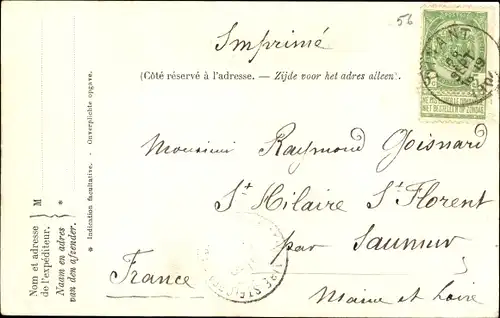 56
Imprimé
(Côté réservé à l'adresse. — Zijde voor het adres alleen.)
DINANT
NE PAS LIVRER LE DIMANCHE
NIET BESTELLEN OP ZONDAG
Monsieur Raymond Goisnard
St Hilaire St Florent
par Saumur
France
Maine et Loire
M
*
Nom et adresse
de l'expéditeur.
Naam en adres
van den afzender.
* Indication facultative. - Onverplichte opgave.